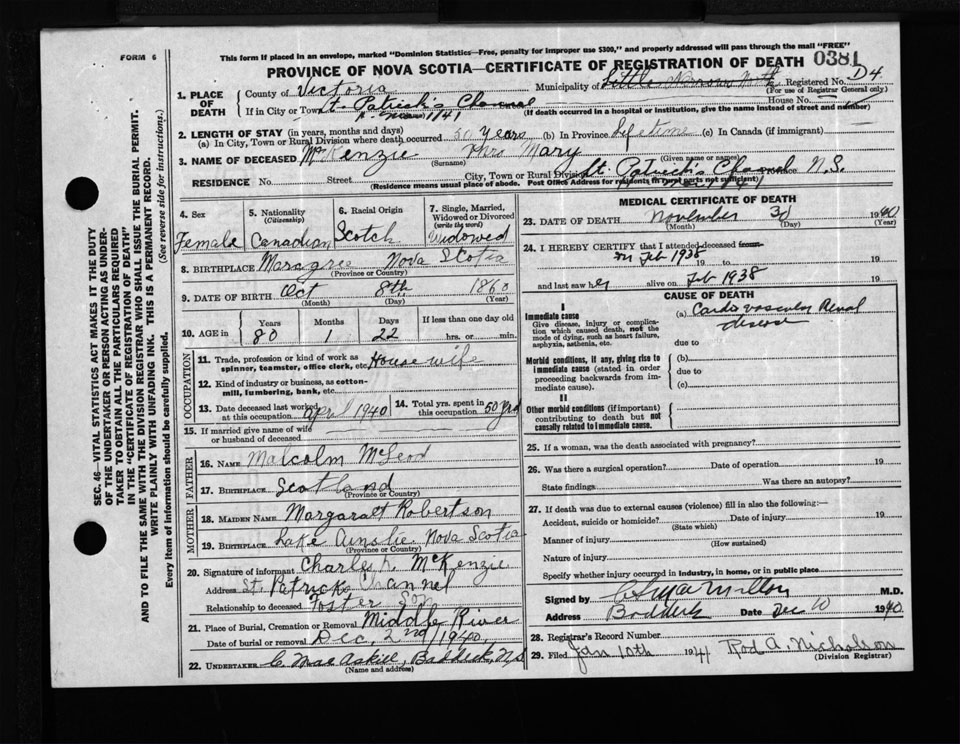 FORM 6
This form if placed in an envelope, marked "Dominion Statistics—Free, penalty for improper use $300," and properly addressed will pass through the mail "FREE"
PROVINCE OF NOVA SCOTIA—CERTIFICATE OF REGISTRATION OF DEATH
0381
1. PLACE OF DEATH
County of Victoria Municipality of Little Narrows North Registered No. D4
(For use of Registrar General only.)
If in City or Town St. Patrick's Channel House No.
(If death occurred in a hospital or institution, give the name instead of street and number)
2. LENGTH OF STAY (in years, months and days)
(a) In City, Town or Rural Division where death occurred 50 years (b) In Province Lifetime (c) In Canada (if immigrant)
3. NAME OF DECEASED McKenzie Mrs Mary
(Surname) (Given name or names)
RESIDENCE No. Street City, Town or Rural Division St. Patrick's Channel Province N.S.
(Residence means usual place of abode. Post Office Address for residents in rural parts not sufficient)
4. Sex Female
5. Nationality (Citizenship) Canadian
6. Racial Origin Scotch
7. Single, Married, Widowed or Divorced (write the word) Widowed
8. BIRTHPLACE Margree Nova Scotia
(Province or Country)
9. DATE OF BIRTH Oct 8th 1860
(Month) (Day) (Year)
10. AGE in Years Months Days If less than one day old
80 1 22 hrs. or min.
OCCUPATION
11. Trade, profession or kind of work as spinner, teamster, office clerk, etc. House wife
12. Kind of industry or business, as cotton-mill, lumbering, bank, etc.
13. Date deceased last worked at this occupation April 1940
14. Total yrs. spent in this occupation 50 yrs
15. If married give name of wife or husband of deceased
FATHER
16. NAME Malcolm McLeod
17. BIRTHPLACE Scotland
(Province or Country)
MOTHER
18. MAIDEN NAME Margaratt Robertson
19. BIRTHPLACE Lake Ainslie Nova Scotia
(Province or Country)
20. Signature of informant Charles N. McKenzie
Address St. Patricks Channel
Relationship to deceased Foster Son
21. Place of Burial, Cremation or Removal Middle River
Date of burial or removal Dec. 2nd/1940
22. UNDERTAKER C. MacAskill, Baddeck, N.S
(Name and address)
MEDICAL CERTIFICATE OF DEATH
23. DATE OF DEATH November 30 1940
(Month) (Day) (Year)
24. I HEREBY CERTIFY that I attended deceased from
in Feb 1938 19 to 19
and last saw her alive on Feb 1938
CAUSE OF DEATH
I
Immediate cause
Give disease, injury or complication which caused death, not the mode of dying, such as heart failure, asphyxia, asthenia, etc.
(a) Cardio vascular Renal disease
due to
Morbid conditions, if any, giving rise to immediate cause (stated in order proceeding backwards from immediate cause).
(b)
due to
(c)
II
Other morbid conditions (if important) contributing to death but not causally related to immediate cause.
25. If a woman, was the death associated with pregnancy?
26. Was there a surgical operation? Date of operation 19
State findings Was there an autopsy?
27. If death was due to external causes (violence) fill in also the following:—
Accident, suicide or homicide? Date of injury 19
(State which)
Manner of injury
(How sustained)
Nature of injury
Specify whether injury occurred in industry, in home, or in public place
Signed by M.D.
Address Baddeck Date Dec 10 1940
28. Registrar's Record Number
29. Filed Jan 10th 1941 Rod A. Nicholson
(Division Registrar)
SEC. 46—VITAL STATISTICS ACT MAKES IT THE DUTY
OF THE UNDERTAKER OR PERSON ACTING AS UNDER-
TAKER TO OBTAIN ALL THE PARTICULARS REQUIRED
IN THE "CERTIFICATE OF REGISTRATION OF DEATH"
AND TO FILE THE SAME WITH THE DIVISION REGISTRAR WHO SHALL ISSUE THE BURIAL PERMIT.
WRITE PLAINLY WITH UNFADING INK. THIS IS A PERMANENT RECORD.
Every item of information should be carefully supplied. (See reverse side for instructions.)